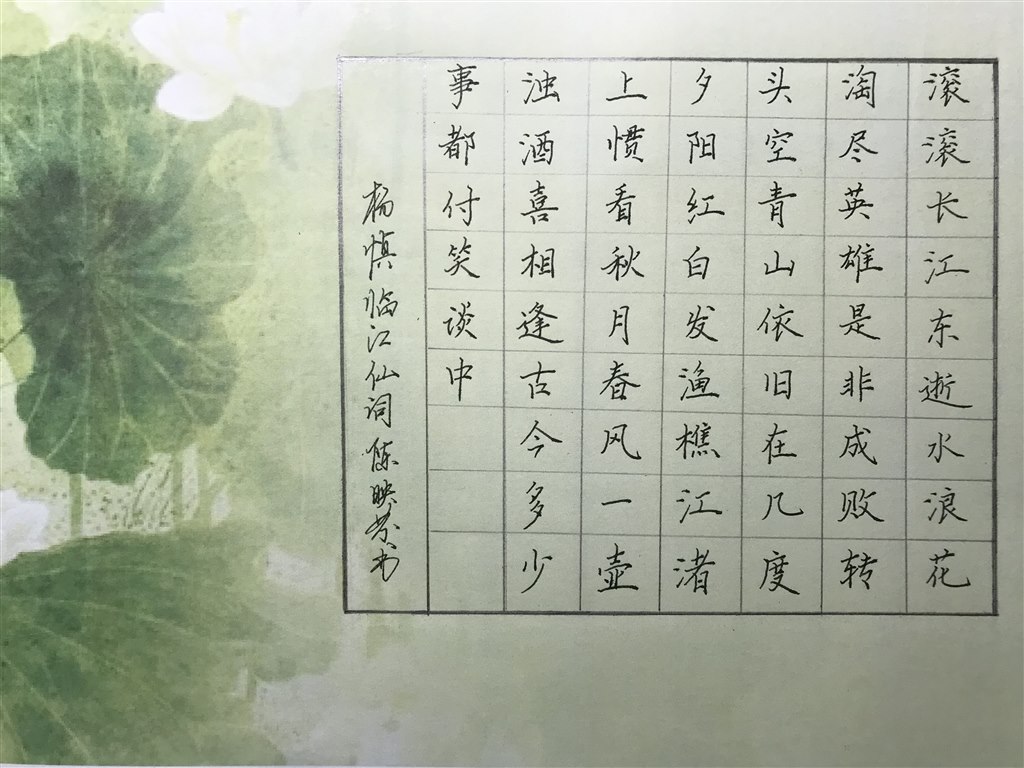 滚滚长江东逝水浪花
淘尽英雄是非成败转
头空青山依旧在几度
夕阳红白发渔樵江渚
上惯看秋月春风一壶
浊酒喜相逢古今多少
事都付笑谈中
杨慎临江仙词陈映芬书